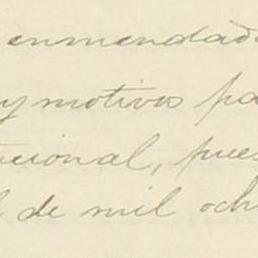 enmendada
y motivos pa
tucional, pues
l de mil och